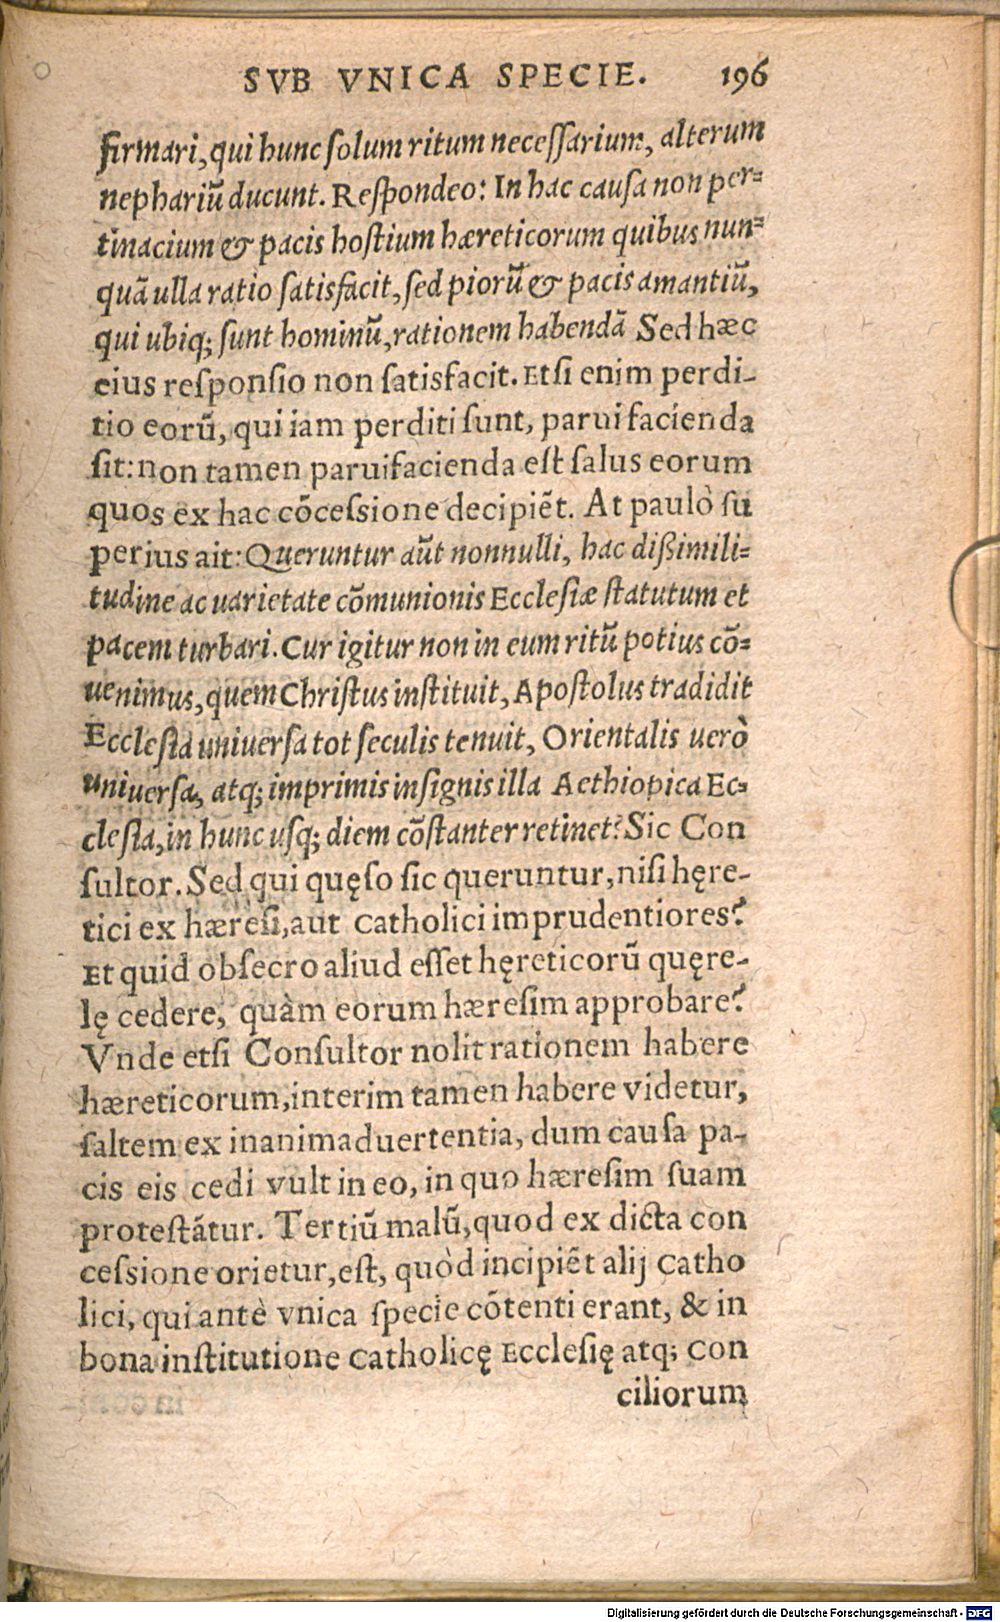 SVB VNICA SPECIE. 196
firmari, qui hunc ſolum ritum neceſſarium, alterum
nephariũ ducunt. Reſpondeo: In hac cauſa non per-
tinacium & pacis hoſtium hæreticorum quibus nun-
quã ulla ratio ſatisfacit, ſed piorũ & pacis amantiũ,
qui ubiq; ſunt hominũ, rationem habendã Sed hæc
eius reſponſio non ſatisfacit. Etſi enim perdi-
tio eorũ, qui iam perditi ſunt, parui facienda
ſit: non tamen paruifacienda eſt ſalus eorum
quos ex hac cõceſsione decipiẽt. At paulò ſu
perius ait: Queruntur aũt nonnulli, hac dißimili-
tudine ac uarietate cõmunionis Eccleſiæ ſtatutum et
pacem turbari. Cur igitur non in eum ritũ potius cõ-
uenimus, quem Chriſtus inſtituit, Apoſtolus tradidit
Eccleſia uniuerſa tot ſeculis tenuit, Orientalis uerò
uniuerſa, atq; imprimis inſignis illa Aethiopica Ec-
cleſia, in hunc uſq; diem cõſtanter retinet? Sic Con
ſultor. Sed qui quęſo ſic queruntur, niſi hęre-
tici ex hæreſi, aut Catholici imprudentiores?
Et quid obſecro aliud eſſet hęreticorũ quęre-
lę cedere, quàm eorum hæreſim approbare?
Vnde etſi Conſultor nolit rationem habere
hæreticorum, interim tamen habere videtur,
ſaltem ex inanimaduertentia, dum cauſa pa-
cis eis cedi vult in eo, in quo hæreſim ſuam
proteſtãtur. Tertiũ malũ, quod ex dicta con
ceſsione orietur, eſt, quòd incipiẽt alij Catho
lici, qui antè vnica ſpecie cõtenti erant, & in
bona inſtitutione Catholicę Eccleſię atq; Con
ciliorum
Digitalisierung gefördert durch die Deutsche Forschungsgemeinschaft - DFG